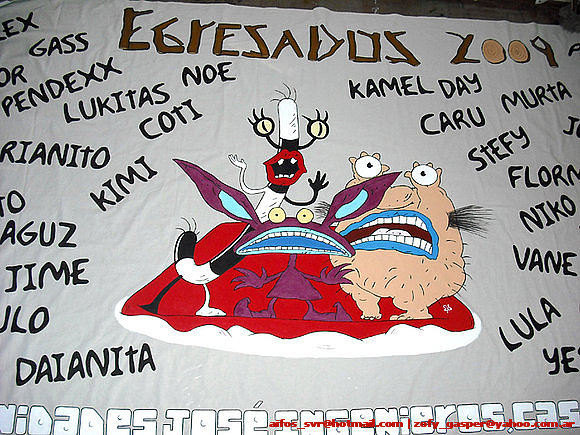 EGRESADOS 2009
EX
GASS
OR
PENDEXX
NOE
LUKITAS
COTI
KAMEL DAY
MURTA
CARU
STEFY
RIANITO
KIMI
FLORM
NIKO
TO
AGUZ
VANE
JIME
ULO
LULA
DAIANITA
YE
NIDADES JOSÉ INGENIEROS, CAS
aifos_svr@hotmail.com | zofy_gasper@yahoo.com.ar